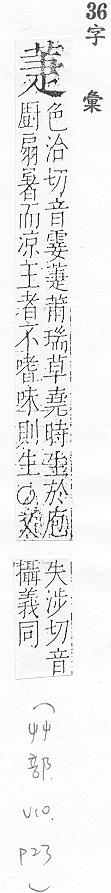 36字彙
萐
色洽切音霎萐莆瑞草堯時生於庖
廚扇暑而涼王者不嗜味則生○又
失涉切音
攝義同
(艸部. V10. P23)